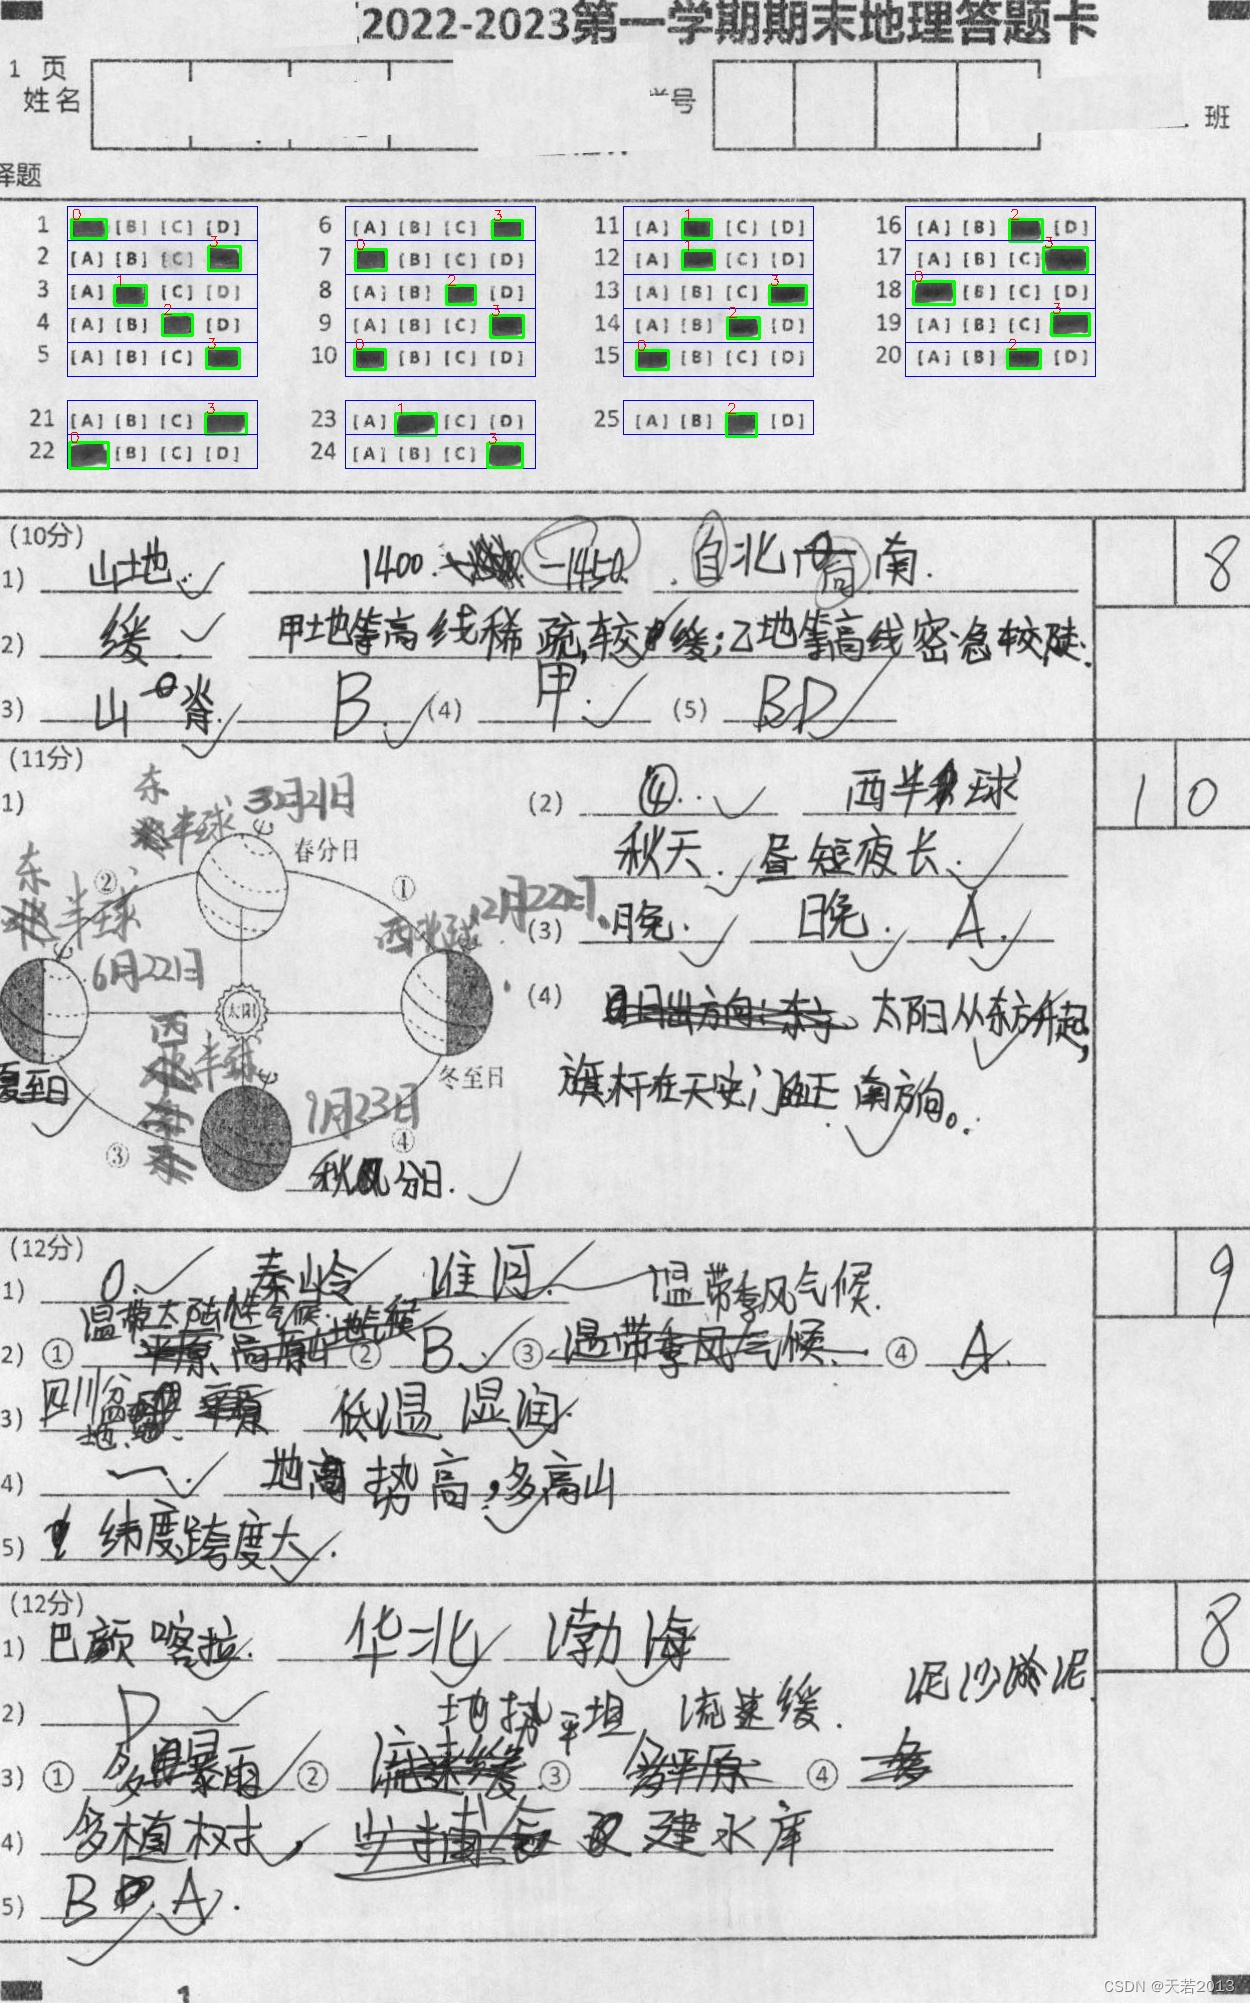 2022-2023第一学期期末地理答题卡
1 页
姓名
号
班
择题
1 0 [B] [C] [D] 6 [A] [B] [C] 3 11 [A] 1 [C] [D] 16 [A] [B] 2 [D]
2 [A] [B] [C] 3 7 0 [B] [C] [D] 12 [A] 1 [C] [D] 17 [A] [B] [C] 3
3 [A] 1 [C] [D] 8 [A] [B] 2 [D] 13 [A] [B] [C] 3 18 0 [B] [C] [D]
4 [A] [B] 2 [D] 9 [A] [B] [C] 3 14 [A] [B] 2 [D] 19 [A] [B] [C] 3
5 [A] [B] [C] 3 10 0 [B] [C] [D] 15 0 [B] [C] [D] 20 [A] [B] 2 [D]
21 [A] [B] [C] 3 23 [A] 1 [C] [D] 25 [A] [B] 2 [D]
22 0 [B] [C] [D] 24 [A] [B] [C] 3
(10分) 8
1) 山地. 1400. -1450. 自北向南.
2) 缓. 甲地等高线稀疏,较缓;乙地等高线密急较陡.
3) 山脊. B. (4) 甲. (5) BD
(11分) 10
1) 东半球 3月21日 (2) ④. 西半球
春分日 秋天. 昼短夜长.
② ① 东半球
西半球 12月22日. (3) 月兔. 日兔. A.
6月22日
太阳 (4) 太阳从东方升起,
西半球 冬至日 旗杆在天安门的正南方向。
夏至日 9月23日
③ ④
秋分日.
(12分) 9
1) 0. 秦岭 淮河 温带季风气候.
温带大陆性气候.
2) ① ② B. ③ 温带季风气候. ④ A.
3) 四川盆地. 低温 湿润.
4) 一. 地势高,多高山
5) 纬度跨度大.
(12分) 8
1) 巴颜喀拉. 华北 渤海
2) D 地势平坦 流速缓. 泥沙淤泥
3) ① 多暴雨 ② 流速缓 ③ 多平原 ④
4) 多植树, 建水库
5) B A.
1
CSDN @天若2013